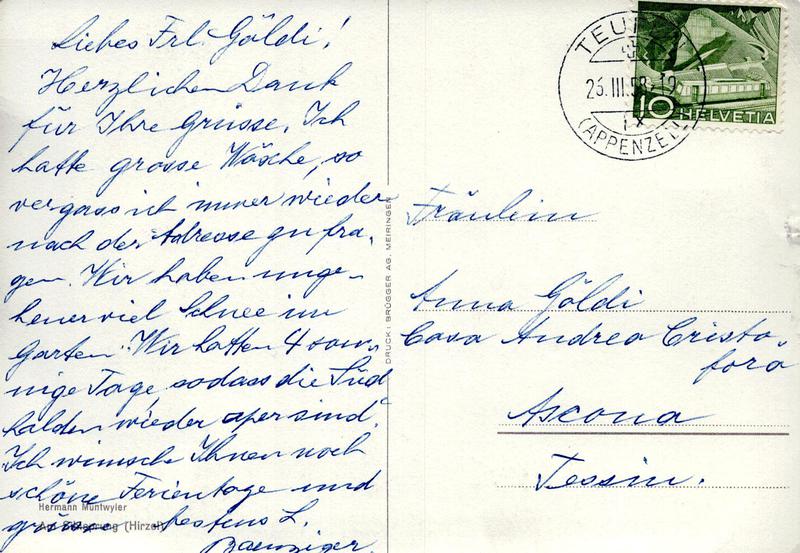 Liebes Frl. Göldi!
Herzlichen Dank
für Ihre Grüsse. Ich
hatte grosse Wäsche, so
vergass ich immer wieder
nach der Adresse zu fra-
gen. Wir haben unge-
heuer viel Schnee im
Garten. Wir hatten 4 son-
nige Tage, sodass die Süd
halden wieder aper sind.
Ich wünsche Ihnen noch
schöne Ferientage und
grüsse bestens L.
Hermann Muntwyler
(Hirzel)
DRUCK: BRÜGGER AG. MEIRINGEN
TEUFEN
(APPENZELL)
10 HELVETIA
Fräulein
Anna Göldi
Casa Andrea Cristo-
foro
Ascona
Tessin.